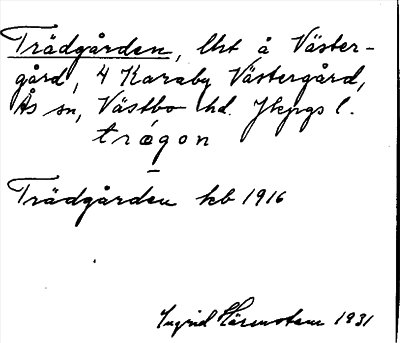 Trädgården, lht å Väster-
gård, 4 Karaby Västergård,
Ås sn, Västbo hd. Jkpgs l.
trǽgon
Trädgården kb 1916
Ingrid Härenstam 1931